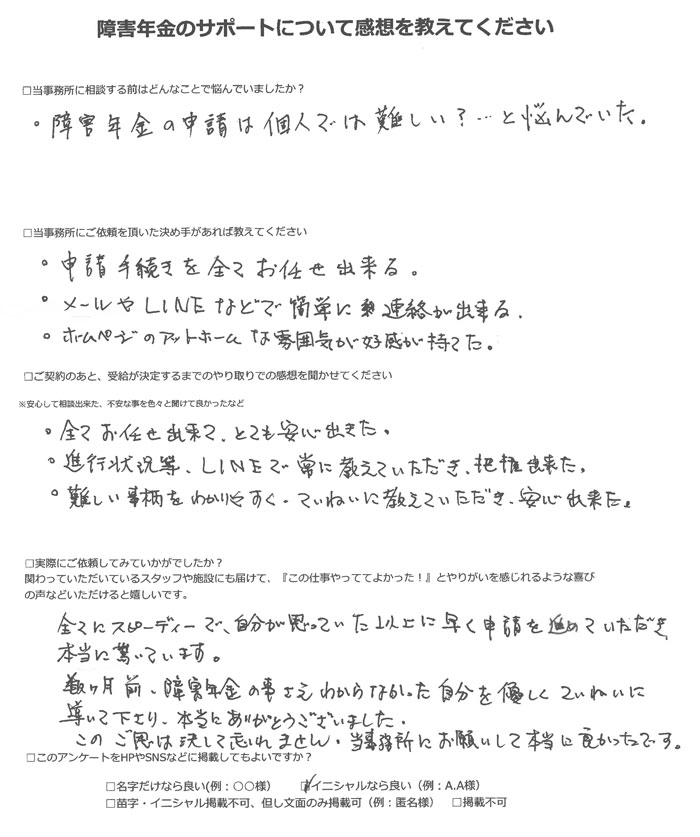 障害年金のサポートについて感想を教えてください
□当事務所に相談する前はどんなことで悩んでいましたか？
・障害年金の申請は個人では難しい？…と悩んでいた。
□当事務所にご依頼を頂いた決め手があれば教えてください
・申請手続きを全てお任せ出来る。
・メールやLINEなどで簡単に連絡が出来る。
・ホームページのアットホームな雰囲気が好感が持てた。
□ご契約のあと、受給が決定するまでのやり取りでの感想を聞かせてください
※安心して相談出来た、不安な事を色々と聞けて良かったなど
・全てお任せ出来て、とても安心出きた。
・進行状況等、LINEで常に教えていただき、把握出来た。
・難しい事柄をわかりやすく、ていねいに教えていただき、安心出来た。
□実際にご依頼してみていかがでしたか？
関わっていただいているスタッフや施設にも届けて、『この仕事やっててよかった！』とやりがいを感じれるような喜び
の声などいただけると嬉しいです。
全てにスピーディーで、自分が思っていた以上に早く申請を進めていただき
本当に驚いています。
数ヶ月前、障害年金の事さえわからなかった自分を優しくていねいに
導いて下さり、本当にありがとうございました。
このご恩は決して忘れません。当事務所にお願いして本当に良かったです。
□このアンケートをHPやSNSなどに掲載してもよいですか？
□名字だけなら良い(例：〇〇様) ☑イニシャルなら良い（例：A.A様）
□苗字・イニシャル掲載不可、但し文面のみ掲載可（例：匿名様） □掲載不可